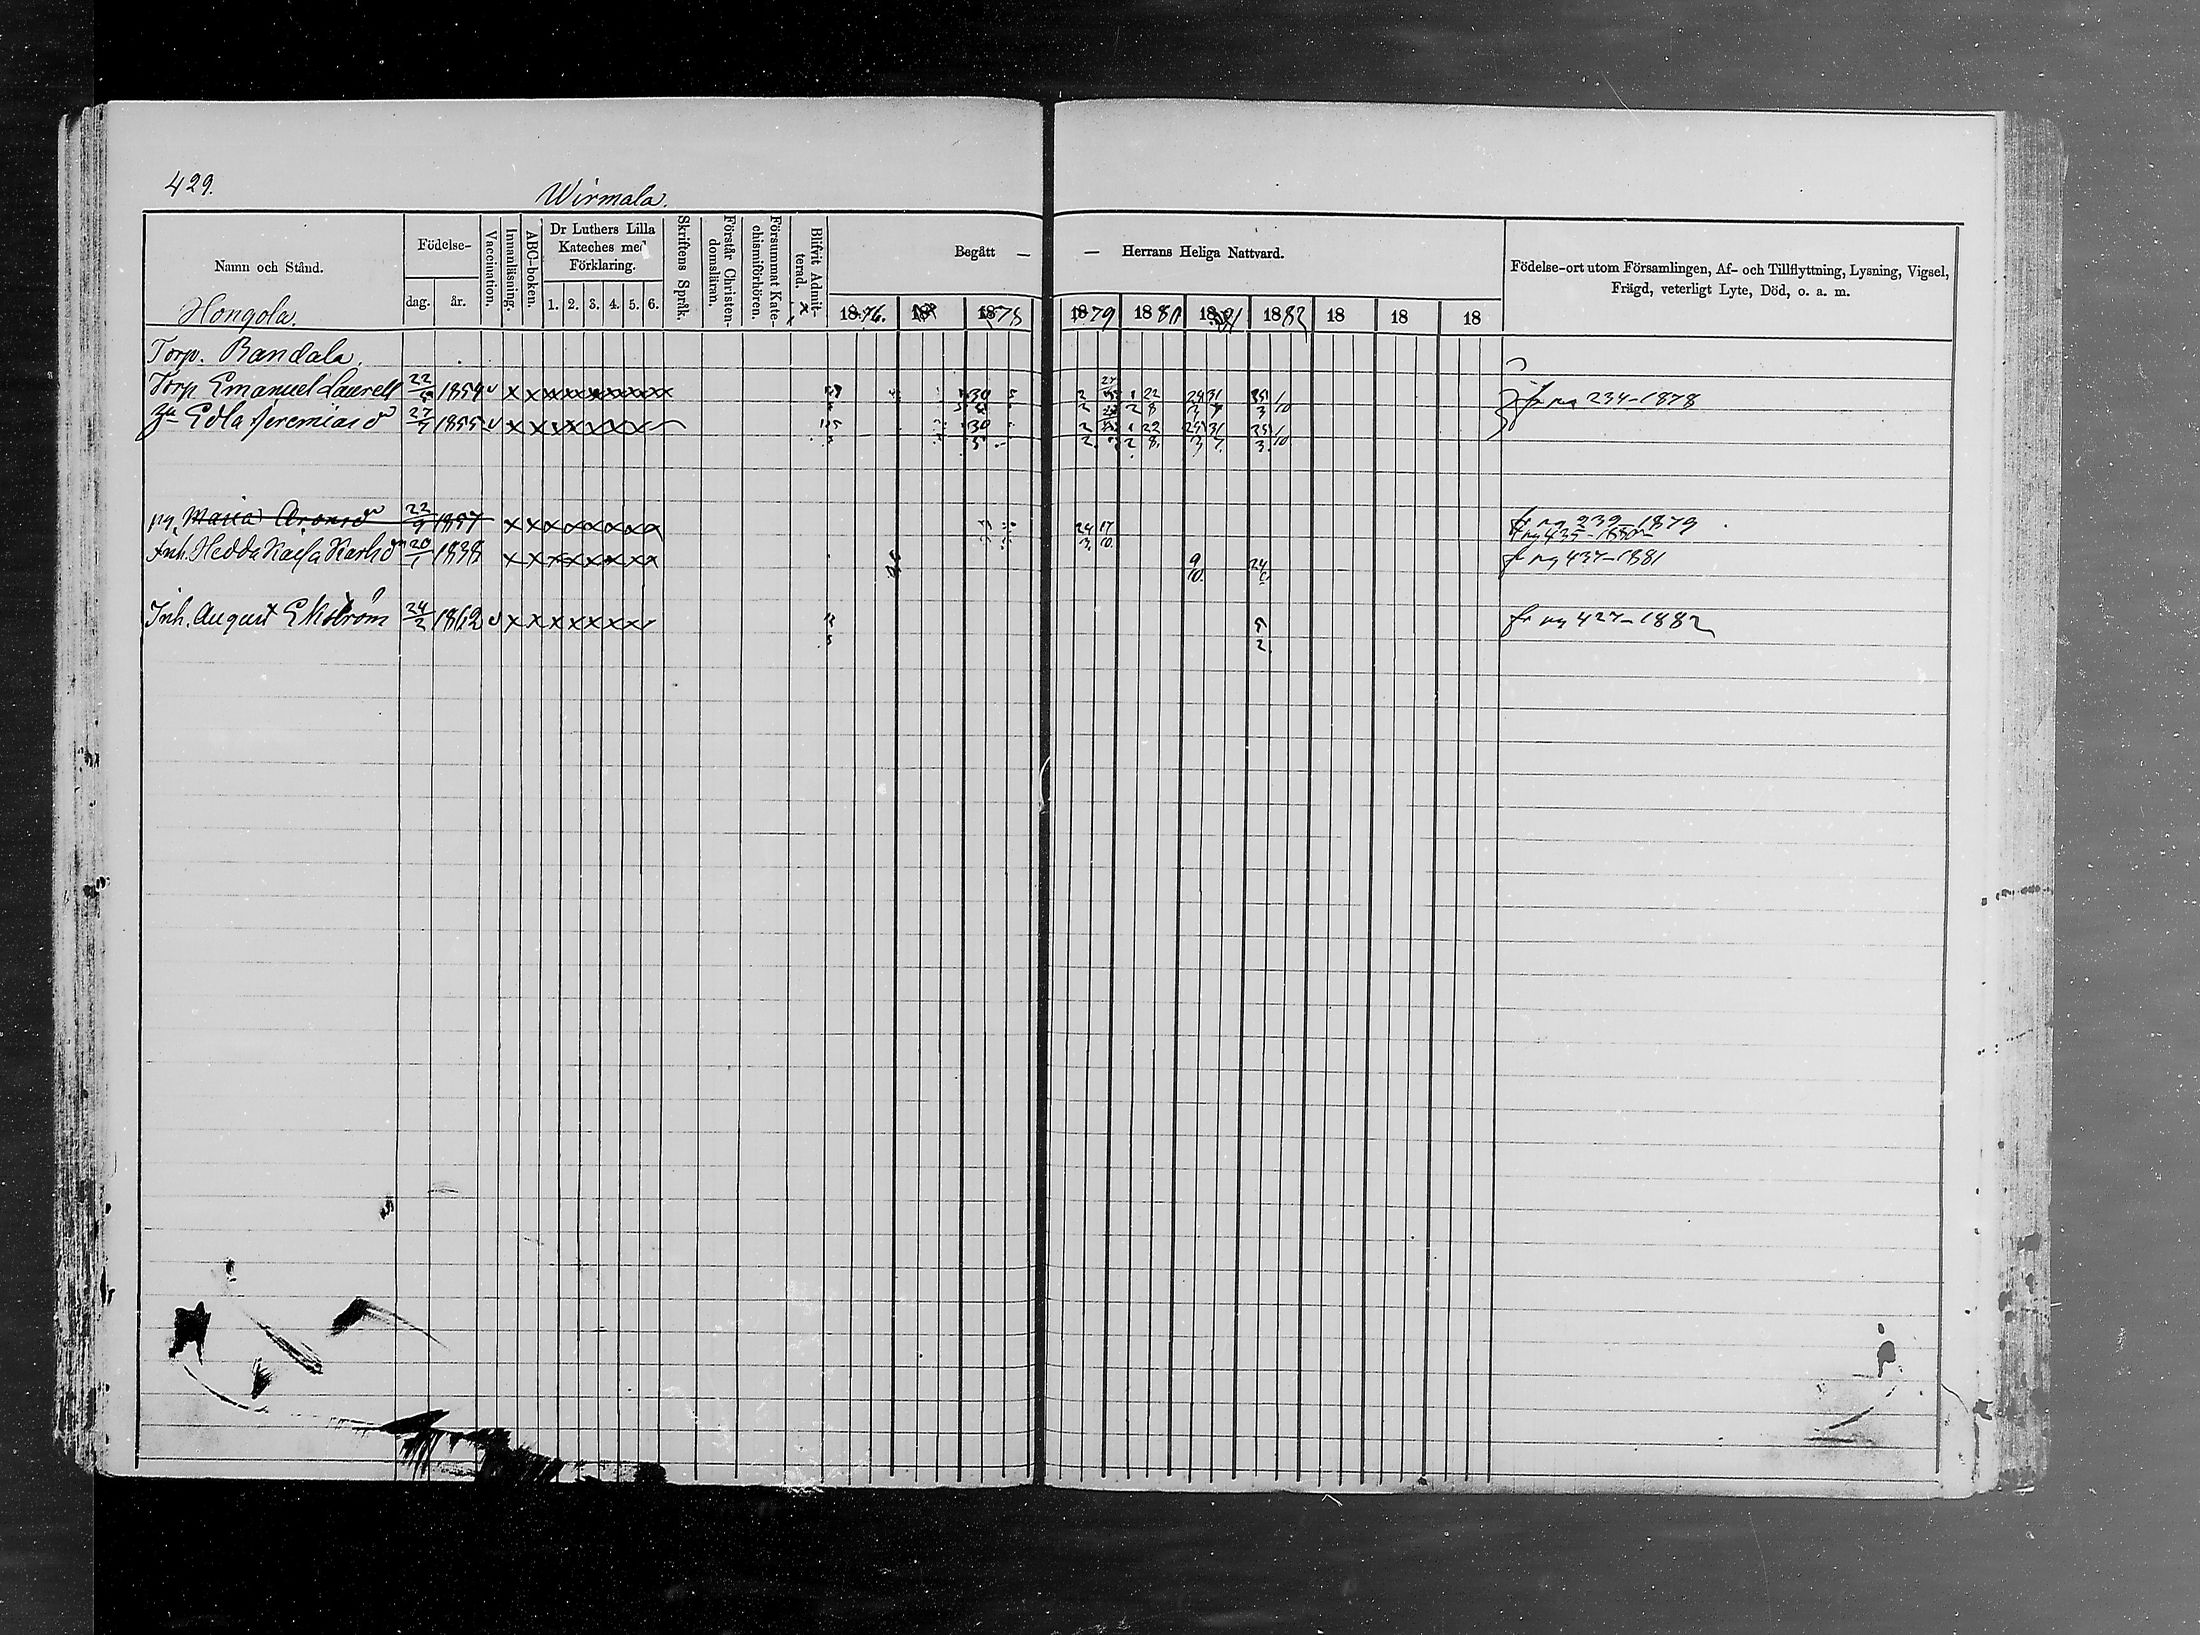 429.
Wirmala.
Namn och Stånd.
Hongola.
Födelse-
dag. år.
Vaccination.
Innanläsning.
ABC-boken.
Dr Luthers Lilla
Kateches med
Förklaring.
1. 2. 3. 4. 5. 6.
Skriftens Språk.
Förstår Christen-
domsläran.
Försummat Kate-
chismiförhören.
Blifvit Admit-
terad.
Begått — — Herrans Heliga Nattvard.
1876. 18 1878 1879 1880 1881 1882 18 18 18
Födelse-ort utom Församlingen, Af- och Tillflyttning, Lysning, Vigsel,
Frägd, veterligt Lyte, Död, o. a. m.
Torp. Bandala.
Torp Emanuel Laurell 22/5 1854 v x x x x x x x x x 30 2 1 22 25 1 fr pg 234-1878
Edla Jeremiasdr 27/5 1855 v x x x x x x x 30 2 1 22 25 1
pg. Maria Aronsdr 22/9 1857 x x x x x x x x 24/3 17/10. fr pg 239-1879
Inh. Hedda Kajsa Karlsdr 20/1 1838 x x x x x x x x 9/10. 24 fr pg 437-1881
Inh. August Ekström 24/2 1862 v x x x x x x x 5/2. fr pg 427-1882